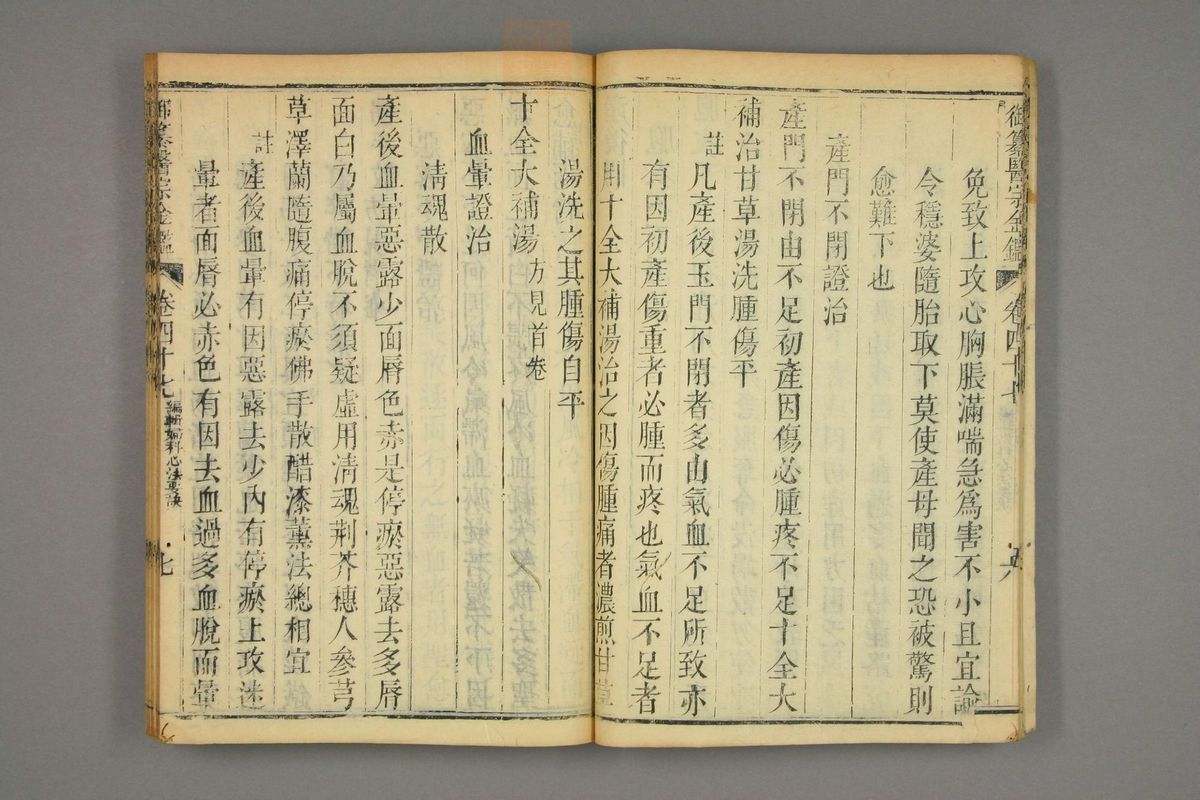 御纂醫宗金鑑 卷四十七 六
免致上攻心胸脹滿喘急爲害不小且宜諭
令穩婆隨胎取下莫使產母聞之恐被驚則
愈難下也
產門不閉證治
產門不閉由不足初產因傷必腫疼不足十全大
補治甘草湯洗腫傷平
註凡產後玉門不閉者多由氣血不足所致亦
有因初產傷重者必腫而疼也氣血不足者
用十全大補湯治之因傷腫痛者濃煎甘草
湯洗之其腫傷自平
十全大補湯方見首卷
血暈證治
清魂散
產後血暈惡露少面脣色赤是停瘀惡露去多脣
面白乃屬血脫不須疑虛用清魂荆芥穗人參芎
草澤蘭隨腹痛停瘀佛手散醋漆薰法總相宜
註產後血暈有因惡露去少內有停瘀上攻迷
暈者面脣必赤色有因去血過多血脫而暈
御纂醫宗金鑑 卷四十七 編輯婦科心法要訣 七